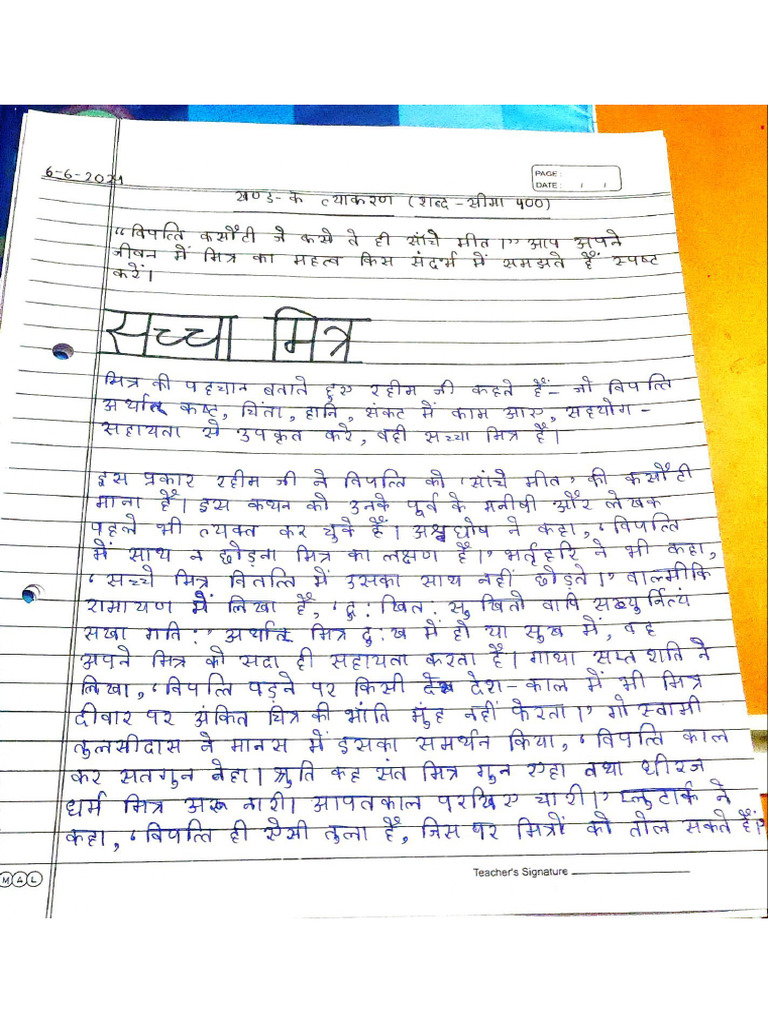 6-6-2024
PAGE :
DATE : / /
खण्ड-क व्याकरण (शब्द-सीमा 400)
“विपत्ति कसौटी जे कसे ते ही सांचे मीत।” आप अपने
जीवन में मित्र का महत्व किस संदर्भ में समझते हैं स्पष्ट
करें।
सच्चा मित्र
मित्र की पहचान बताते हुए रहीम जी कहते हैं- जो विपत्ति
अर्थात कष्ट, चिंता, हानि, संकट में काम आए, सहयोग-
सहायता से उपकृत करे, वही सच्चा मित्र है।
इस प्रकार रहीम जी ने विपत्ति को ‘सांचे मीत’ की कसौटी
माना है। इस कथन को उनके पूर्व के मनीषी और लेखक
पहले भी व्यक्त कर चुके हैं। अश्वघोष ने कहा, ‘विपत्ति
में साथ न छोड़ना मित्र का लक्षण है।’ भर्तृहरि ने भी कहा,
‘सच्चे मित्र वितत्ति में उसका साथ नहीं छोड़ते।’ वाल्मीकि
रामायण में लिखा है, ‘दु:खित: सुखितो वापि सख्युर्नित्यं
सखा गति:’ अर्थात मित्र दु:ख में हो या सुख में, वह
अपने मित्र को सदा ही सहायता करता है। गाथा सप्तशति ने
लिखा, ‘विपत्ति पड़ने पर किसी देश-काल में भी मित्र
दीवार पर अंकित चित्र की भाँति मुंह नहीं फेरता।’ गोस्वामी
तुलसीदास ने मानस में इसका समर्थन किया, ‘विपत्ति काल
कर सतगुन नेहा। श्रुति कह संत मित्र गुन एहा तथा धीरज
धर्म मित्र अरू नारी। आपतकाल परखिए चारी।’ प्लुटार्क ने
कहा, ‘विपत्ति ही ऐसी तुला है, जिस पर मित्रों को तोल सकते हैं।’
Teacher's Signature
M A L